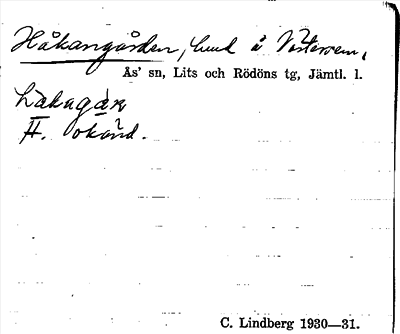 Håkangården, hmd å Västerven,
Ås' sn, Lits och Rödöns tg, Jämtl. l.
H. okänd.
C. Lindberg 1930—31.